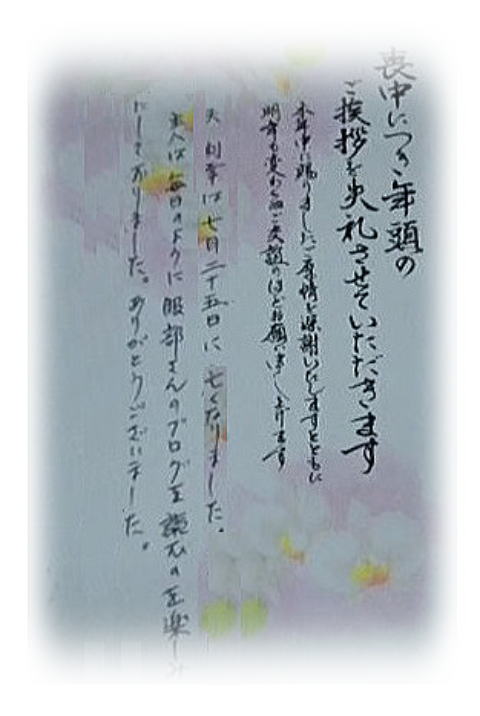 喪中につき年頭の
ご挨拶を失礼させていただきます
本年中に賜りましたご厚情を深謝いたしますとともに
明年も変わらぬご交誼のほどお願い申し上げます
夫 は七月二十五日に亡くなりました。
主人は毎日のように服部さんのブログを読むのを楽しみ
にしておりました。ありがとうございました。